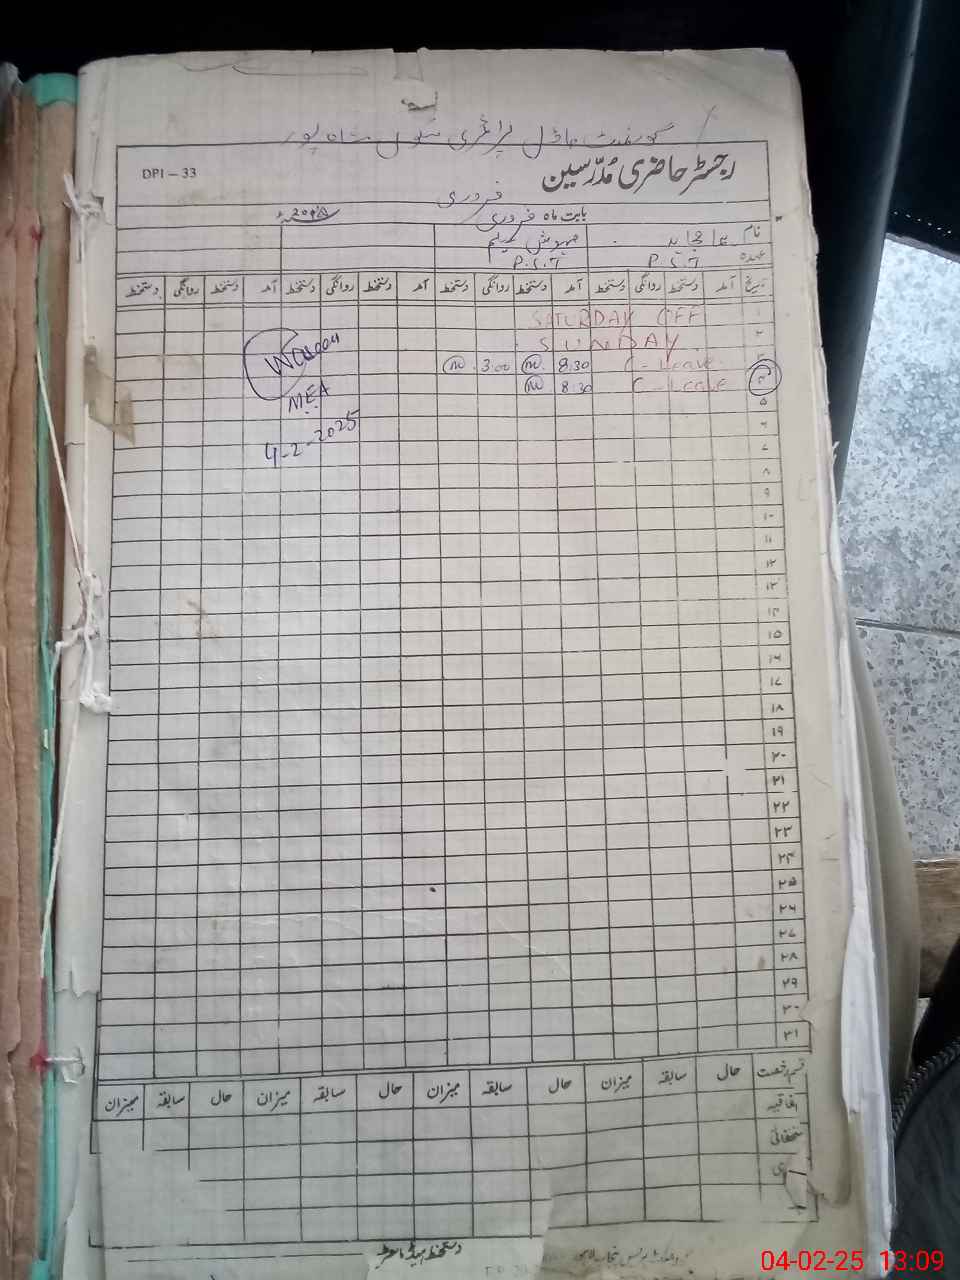 گورنمنٹ ماڈل پرائمری سکول شاہ پور
DPI – 33
رجسٹر حاضری مُدرّسین
فروری
بابت ماہ فروری
نام
مہوش
عہدہ P.S.T P.S.T
تاریخ آمد دستخط روانگی دستخط آمد دستخط روانگی دستخط آمد دستخط روانگی دستخط آمد دستخط روانگی دستخط
۱ SATURDAY OFF
۲ SUNDAY
۳ C-Leave 8:30 3:00
۴ C-Leave 8:30
MEA
4-2-2025
۵
۶
۷
۸
۹
۱۰
۱۱
۱۲
۱۳
۱۴
۱۵
۱۶
۱۷
۱۸
۱۹
۲۰
۲۱
۲۲
۲۳
۲۴
۲۵
۲۶
۲۷
۲۸
۲۹
۳۰
۳۱
قسم رخصت حال سابقہ میزان حال سابقہ میزان حال سابقہ میزان حال سابقہ میزان
اتفاقیہ
استحقاقی
دستخط ہیڈ ماسٹر
04-02-25 13:09